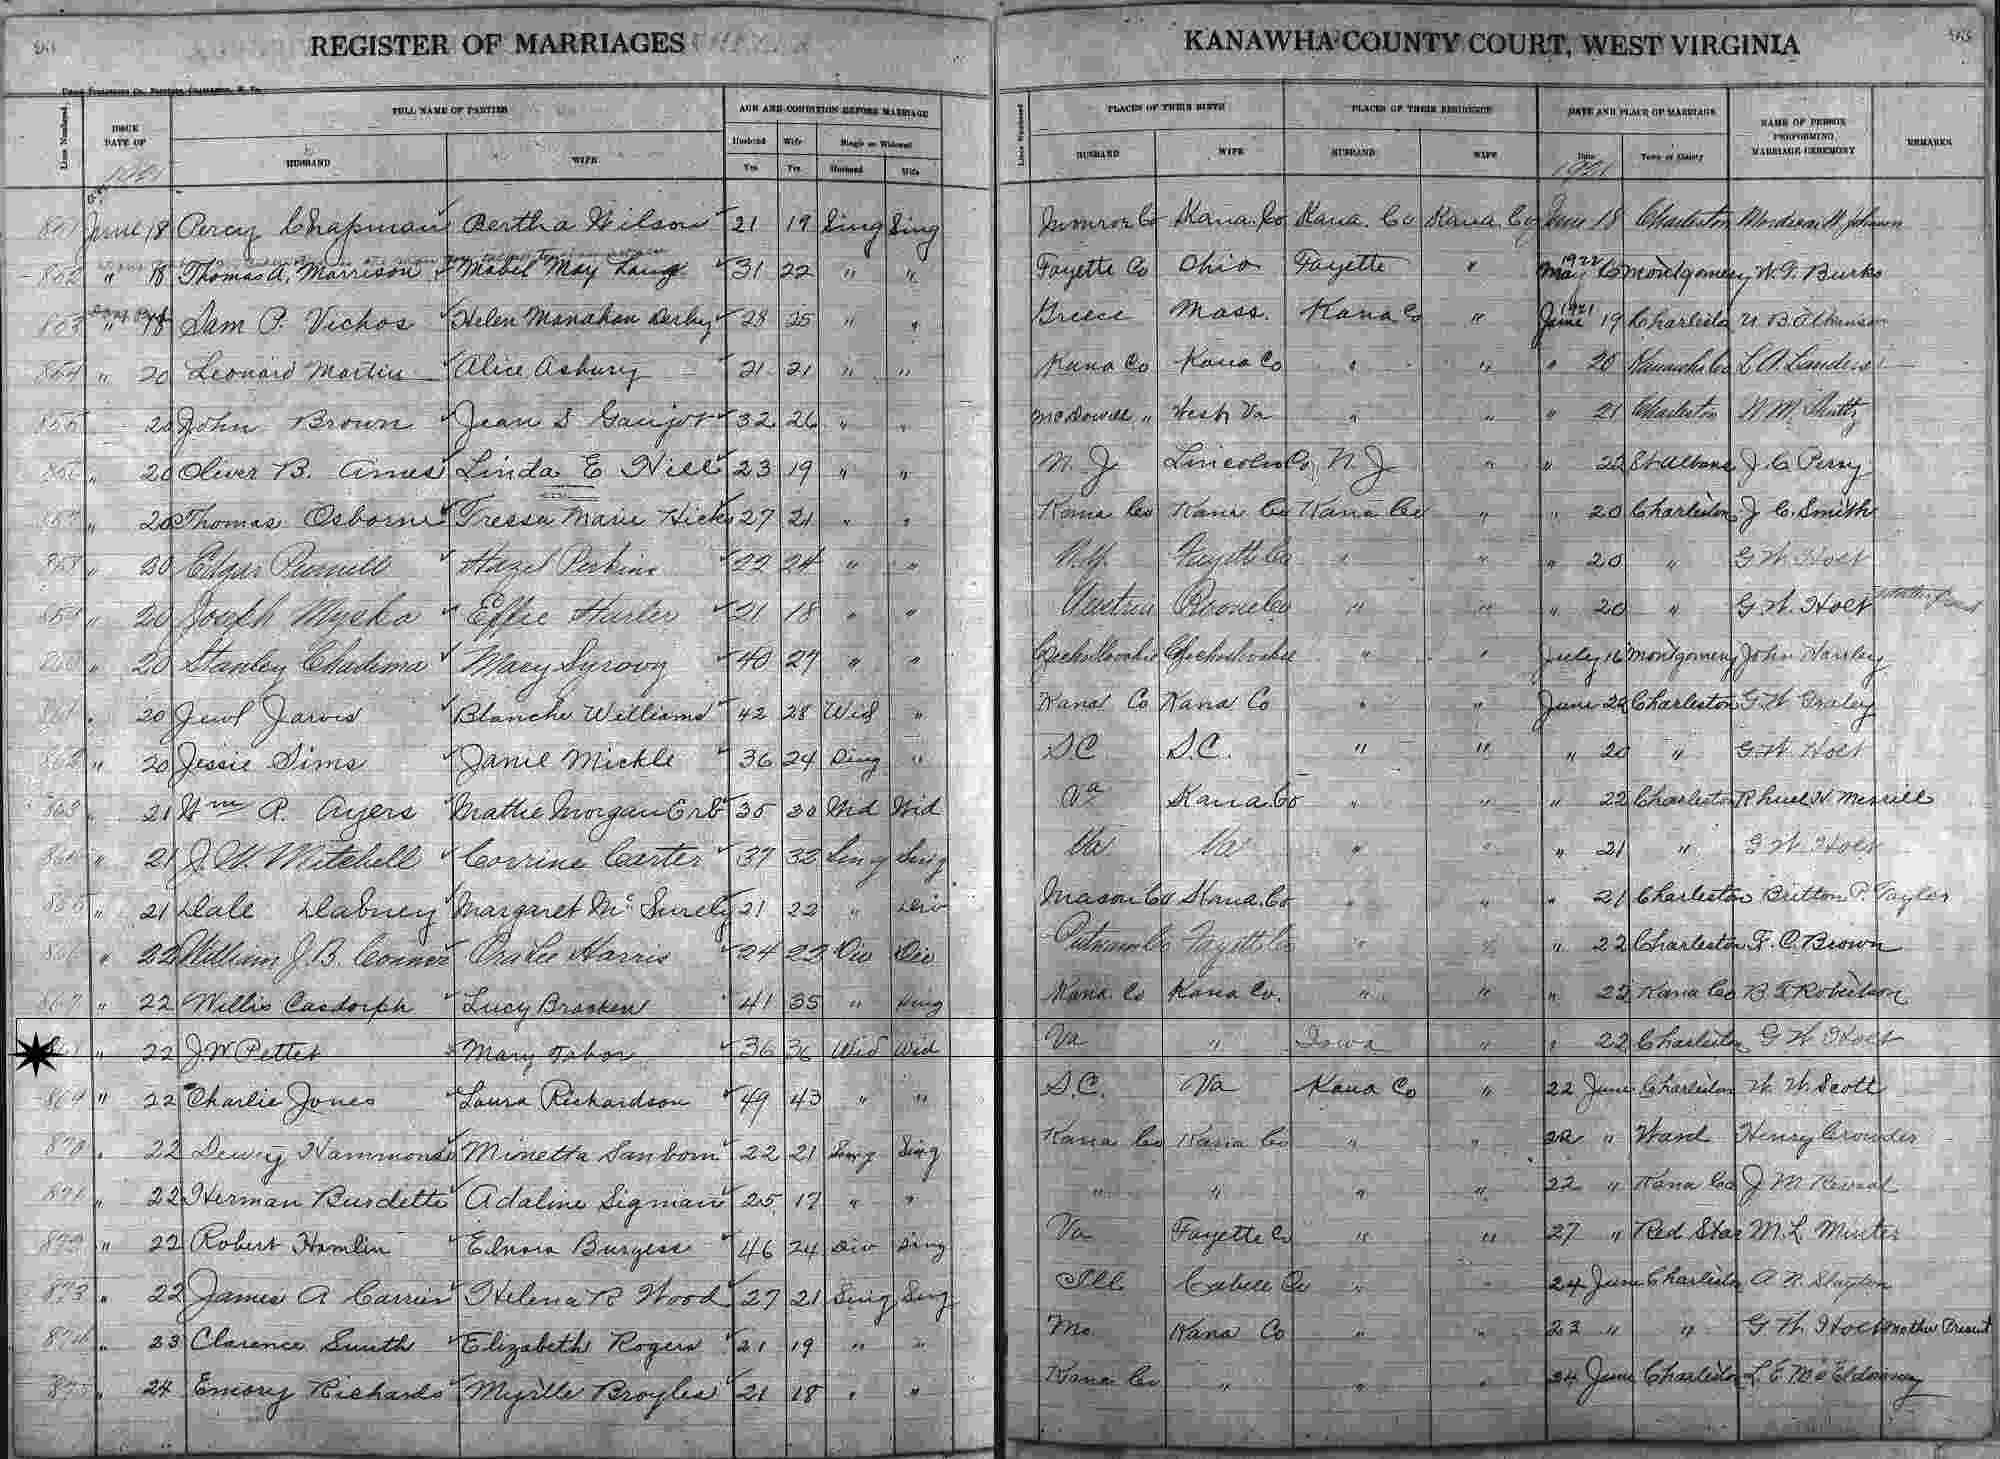 REGISTER OF MARRIAGES
KANAWHA COUNTY COURT, WEST VIRGINIA
Line Numbered
ISSUE DATE OF
FULL NAME OF PARTIES
HUSBAND
WIFE
AGE AND CONDITION BEFORE MARRIAGE
Husband Wife Single or Widowed
Yrs Yrs Husband Wife
Line Numbered
PLACES OF THEIR BIRTH
HUSBAND
WIFE
PLACES OF THEIR RESIDENCE
HUSBAND
WIFE
DATE AND PLACE OF MARRIAGE
Date
Town or County
NAME OF PERSON PERFORMING MARRIAGE CEREMONY
REMARKS
1921
1921
851 June 18 Percy Chapman Bertha Wilson 21 19 Sing Sing Monroe Co Kana. Co Kana. Co Kana. Co June 18 Charleston
852 " 18 Thomas A. Morrison Mabel May 31 22 " " Fayette Co Ohio Fayette " May 1922 Montgomery W. F. Burks
853 " 18 Sam P. Vichos Helen Monahan Derby 28 25 " " Greece Mass. Kana Co " June 1921 19 Charlesto U. B. Atkinson
854 " 20 Leonard Martin Alice Asbury 21 21 " " Kana Co Kana Co " " " 20 Kanawha Co L. A. Landers
855 20 John Brown Jean S Gaujot 32 26 " " McDowell " West Va " " " 21 Charleston
856 " 20 Oliver B. Ames Linda E Hill 23 19 " " N. J Lincoln Co N. J " " 22 St Albans J. C. Perry
857 " 20 Thomas Osborne Tressa Marie Hicks 27 21 " " Kana Co Kana Co Kana Co " " 20 Charleston J. C. Smith
858 " 20 Edgar Hazel Perkins 22 24 " " Fayette Co " " " 20 " G W Holt
859 " 20 Joseph Myska Effie 21 18 " " Austria Boone Co " " " 20 " G. W. Holt
860 " 20 Stanley Chadima Mary Syrowy 40 27 " " " " July 16 Montgomery John
861 " 20 Jewl Jarvis Blanche Williams 42 28 Wid " Kana Co Kana Co " " June 22 Charleston G. W. Graley
862 " 20 Jessie Sims Janie Mickle 36 24 Sing " S. C S. C. " " " 20 " G. W. Holt
863 " 21 Wm R. Ayers Mattie Morgan Erb 35 30 Wid Wid Va Kana. Co " " " 22 Charleston Rhuel H. Merrill
864 " 21 J. W. Mitchell Corrine Carter 37 32 Sing Sing Va Va " " " 21 " G W Holt
865 " 21 Dale Dabney Margaret McSurely 21 22 " Div Mason Co Kana. Co " " " 21 Charleston Britton P. Taylor
866 " 22 William J. B. Conner Ora Lee Harris 24 22 Div Div Putnam Co Fayette Co " " " 22 Charleston F. C. Brown
867 " 22 Willis Casdorph Lucy Bracken 41 35 " Sing Kana Co Kana Co. " " " 22 Kana Co B. F. Robertson
" 22 J W Petter Mary Tabor 36 36 Wid Wid Va " Iowa " " 22 Charleston G W Holt
869 " 22 Charlie Jones Laura Richardson 49 43 " " S. C. Va Kana Co " 22 June Charleston W. W. Scott
870 " 22 Dewey Hammonds Minetta Sanbom 22 21 Sing Sing Kana Co Kana Co " " 22 " Ward Henry Crowder
871 " 22 Herman Burdette Adaline Sigman 25 17 " " " " " " 22 " Kana Co J M
872 " 22 Robert Hamlin Elnora Burgess 46 24 Div Sing Va Fayette Co " " 27 " Red Star M. L. Minter
873 " 22 James A Carrier Helena R Wood 27 21 Sing Sing Ill Cabell Co " " 24 June Charleston A. N. Slayton
874 " 23 Clarence Smith Elizabeth Rogers 21 19 " " Mo. Kana Co " " 23 " " G W Holt Mother Present
875 " 24 Emory Richards Myrtle Broyles 21 18 " " Kana Co " " " 24 June Charleston L. E. McEldowney